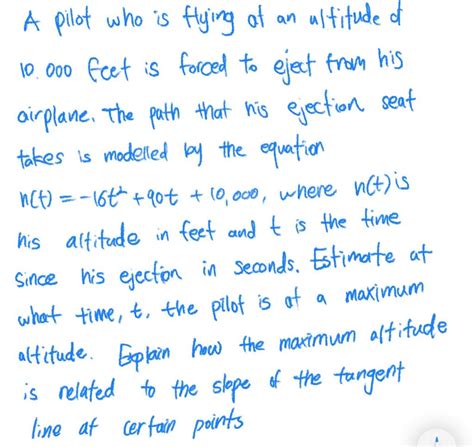 A pilot who is flying at an altitude of
10.000 feet is forced to eject from his
airplane. The path that his ejection seat
takes is modelled by the equation
h(t) = -16t² + 90t + 10,000, where h(t) is
his altitude in feet and t is the time
since his ejection in seconds. Estimate at
what time, t, the pilot is at a maximum
altitude. Explain how the maximum altitude
is related to the slope of the tangent
line at certain points